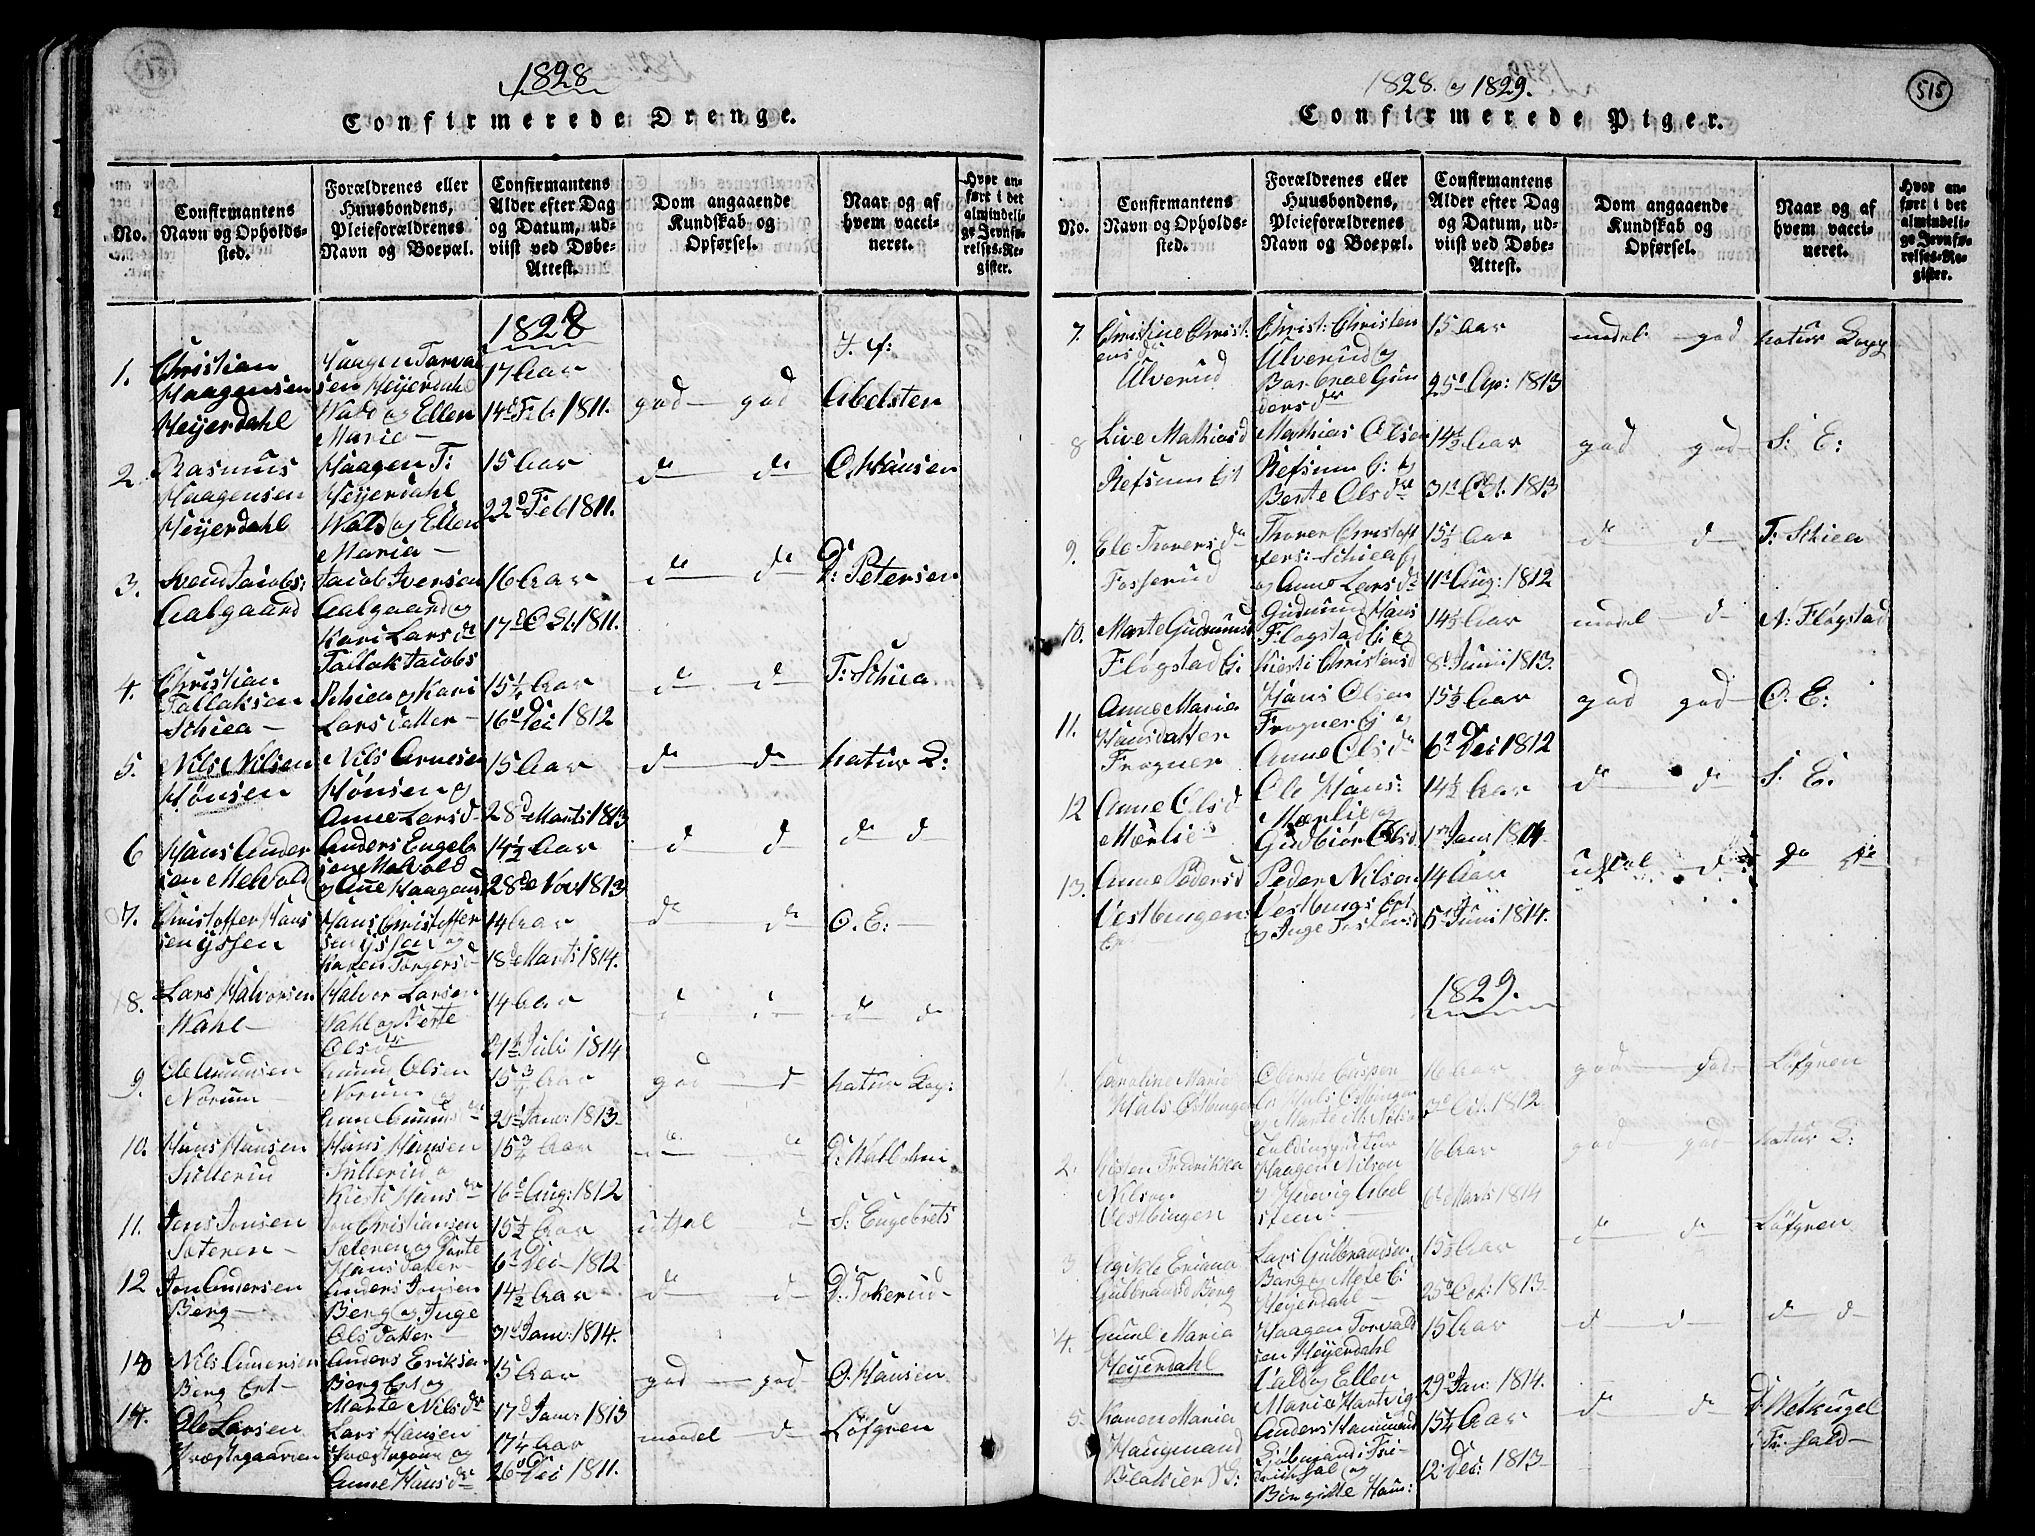 1828
Confirmerede Drenge.
No.
Confirmantens
Navn og Opholds-
sted.
Forældrenes eller
Huusbondens,
Pleieforældrenes
Navn og Boepæl.
Confirmantens
Alder efter Dag
og Datum, ud-
viist ved Døbe-
Attest.
Dom angaaende
Kundskab og
Opførsel.
Naar og af
hvem vacci-
neret.
Hvor an-
ført i det
almindeli-
ge Jevnfø-
relses-Re-
gister.
1828
1.
Christian
Haagensen
Heyerdahl
Haagen Torval
sen Heyerdahl
Wald og Ellen
Marie
17 Aar
14d Feb 1811.
god god
Abelsten
2.
Rasmus
Haagensen
Heyerdahl
Haagen T:
Heyerdahl
Wald og Ellen
Maria
15 Aar
22d Feb 1811.
do do
O. Hansen
3.
Svend Jacobs:
Aalgaard
Jacob Iversen
Aalgaard og
Kari Larsdr
16 Aar
17d Oct. 1811.
do do
D: Petersen
4.
Christian
Tallaksen
Schiea
Tallak Jacobs
Schiea og Kari
Larsdatter
15¼ Aar
16d Dec 1812
do do
T: Schiea
5.
Nils Nilsen
Hønsen
Nils Arnesen
Hønsen og
Anne Larsd
15 Aar
28d Marts 1813
do do
natur K:
6
Hans Ander
sen Melvold
Anders Engebr
sen Melvold
og Ane Haagensd
14½ Aar
28de Nov 1813
d d
do d
7.
Christoffer Hans
sen Yssen
Hans Christoffer
sen Yssen og
Karen Torgersd
14 Aar
18d Marts 1814.
do do
O. E:
8.
Lars Halvorsen
Wahl
Halvor Larsen
Wahl og Berte
Olsdr
14 Aar
21d Juli 1814
d d
do d
9.
Ole Amundsen
Norum
Amund Olsen
Norum og
15¾ Aar
Janr: 1813
god d
natur Kop:
10.
Hans Hansen
Tullerud
Hans Hansen
Tullerud og
Kirsti Hansdr
15¾ Aar
16d Aug: 1812
do do
11.
Jens Jonsen
Sæteren
Jon Christiansen
Sæteren og Dorte
Hansdatter
15½ Aar
6d Dec 1812
d
S: Engebrets
12
Jon Andersen
Berg
Anders Jonsen
Berg og Inge
Olsdatter
14½ Aar
31d Janr: 1814.
d d
D: Tokerud
Nils Andersen
Berg Ert
Anders Eriksen
Berg Ert og
Marte Nilsdr
15 Aar
17d Janr: 1813
god god
O. Hansen
14.
Ole Larsen
Præstegaarden
Lars Hansen
Præstegaard og
Anne Hansdr
17¼ Aar
26d Dec 1811.
maadel d
Løfgren
1828. og 1829.
515
Confirmerede Piger.
No.
Confirmantens
Navn og Opholds-
sted.
Forældrenes eller
Huusbondens,
Pleieforældrenes
Navn og Boepæl.
Confirmantens
Alder efter Dag
og Datum, ud-
viist ved Døbe-
Attest.
Dom angaaende
Kundskab og
Opførsel.
Naar og af
hvem vacci-
neret.
Hvor an-
ført i det
almindeli-
ge Jevnfø-
relses-Re-
gister.
7.
Christine Christ:
ensd
Ulverud
Christ: Christen
Ulverud og
Barbroe Gun
dersdr
15 Aar
25d Apr: 1813
maadel god
natur Kopp
8
Live Mathiasd
Refsum Ei
Mathias Olsen
Refsum E: og
Berte Olsdr
14½ Aar
31d Oct. 1813
god god
S: E:
9.
Ele Thorersdr
Fosserud
Thorer Christoff
fers: Schiea E
og Anne Larsdr
15½ Aar
11d Aug: 1812
d d
T: Schiea
10.
Marte Gudmunds
Fløgstad Ei.
Gudmund Hans
Fløgstad Ei og
Kirsti Christensd
14½ Aar
8d Juni 1813
maadel d
A: Fløgstad
11.
Anne Maria
Hansdatter
Frogner
Hans Olsen
Frogner Ei og
Anne Olsdr
15½ Aar
6d Dec 1812
god god
O. E:
12
Anne Olsd
Mærlie
Ole Hans:
Mærlie og
Gudbiør Olsd
14½ Aar
1d Janr 1814
d d
S. E:
13.
Anne Pedersd
Vestbyngen
Peder Nilsen
Vestbyngs Ert
og Inge
14 Aar
5d Juni 1814.
d
do do
1829.
1.
Caroline Marie
Hals Østbyngen
Oberste Casper
Hals Østbyngen
16 Aar
Oct: 1812
god god
Løfgren
2.
Fredrikke
Nilson
Vestbyngen
Haagen Nilson
og Hedevig Abel
steen
16 Aar
6d Marts 1814
god god
natur K:
3
Gulbrandsd Berg
Lars Gulbrandsen
Berg og Mete E:
Heyerdahl
15½ Aar
25d Oct: 1813
d d
Løfgren
4.
Gunil Maria
Heyerdahl
Haagen Torvald
sen Heyerdahl
Vald og Ellen
Maria Hartvig
15 Aar
29d Jan: 1814.
d d
d d
5.
Karen Maria
Haugmand
Blakier
Anders Hammand
i Fri-
drichshal og
Birgitte Hans:
15¼ Aar
12 Dec: 1813
d d
i Fr: hald